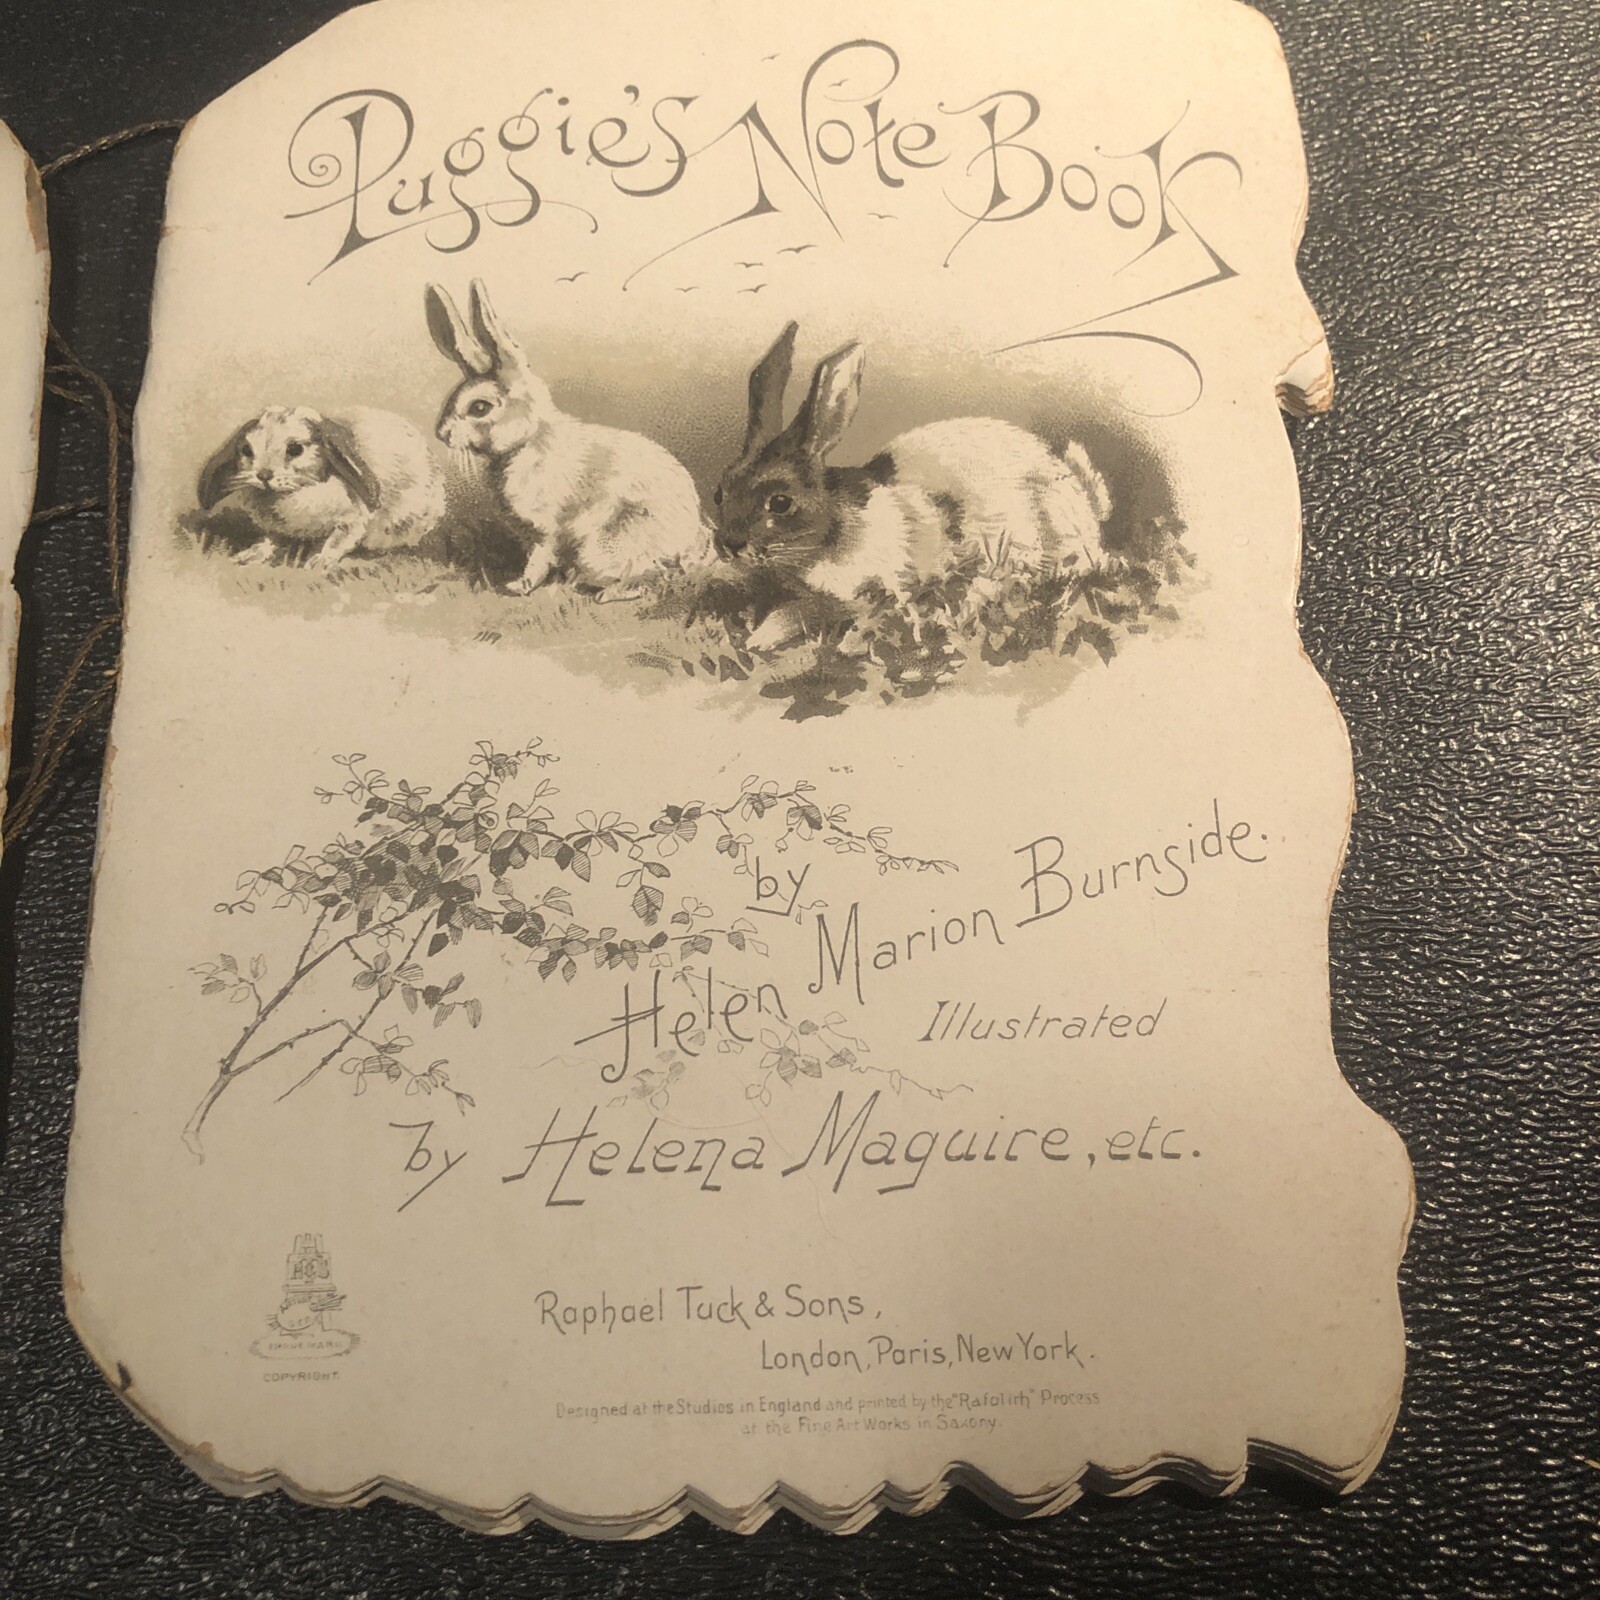 Puggie's Note Book
by
Helen Marion Burnside.
Illustrated
by Helena Maguire, etc.
TRADE MARK
COPYRIGHT.
Raphael Tuck & Sons,
London, Paris, New York.
Designed at the Studios in England and printed by the "Rafolith" Process
at the Fine Art Works in Saxony.